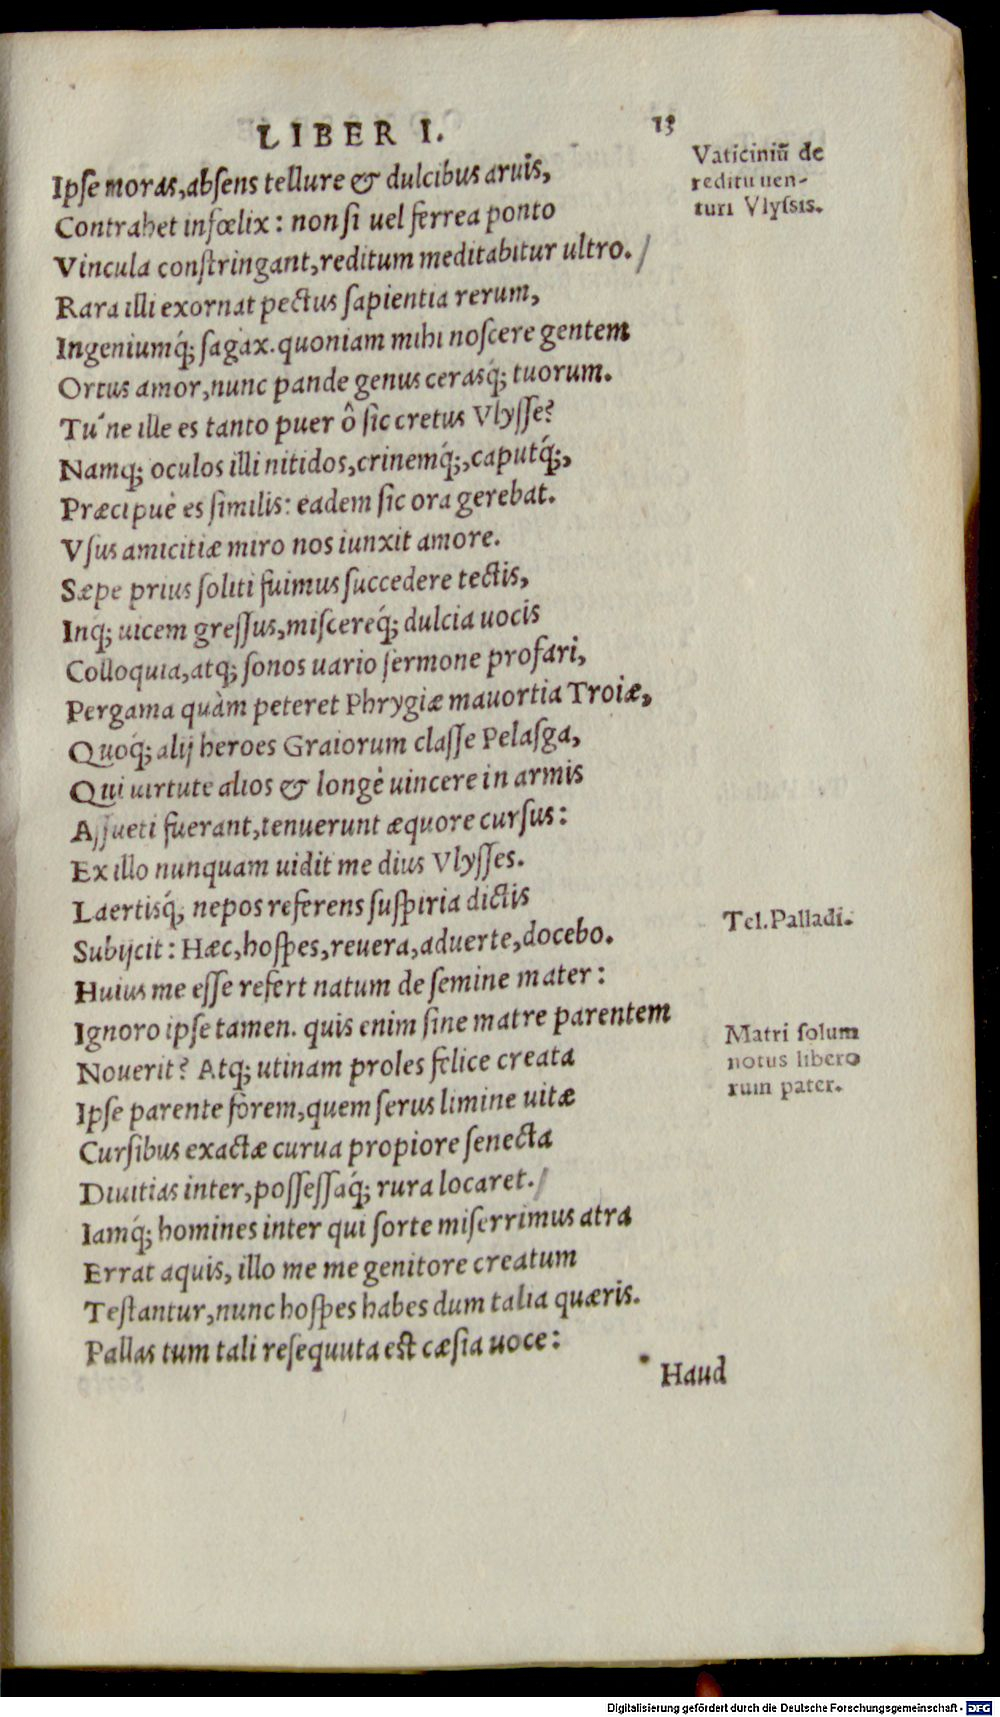 LIBER I. 13
Vaticiniũ de
reditu uen-
turi Vlyssis.
Ipse moras, absens tellure & dulcibus aruis,
Contrahet infœlix: non si uel ferrea ponto
Vincula constringant, reditum meditabitur ultro. /
Rara illi exornat pectus sapientia rerum,
Ingeniumq́; sagax. quoniam mihi noscere gentem
Ortus amor, nunc pande genus cerasq́; tuorum.
Tú ne ille es tanto puer ô sic cretus Vlysse?
Namq; oculos illi nitidos, crinemq́;, caputq́;,
Præcipuè es similis: eadem sic ora gerebat.
Vsus amicitiæ miro nos iunxit amore.
Sæpe prius soliti fuimus succedere tectis,
Inq; uicem gressus, miscereq́; dulcia uocis
Colloquia, atq; sonos uario sermone profari,
Pergama quàm peteret Phrygiæ mauortia Troiæ,
Quoq́; alij heroes Graiorum classe Pelasga,
Qui uirtute alios & longè uincere in armis
Assueti fuerant, tenuerunt æquore cursus:
Ex illo nunquam uidit me dius Vlysses.
Laertisq́; nepos referens suspiria dictis
Tel. Palladi.
Subijcit: Hæc, hospes, reuera, aduerte, docebo.
Huius me esse refert natum de semine mater:
Ignoro ipse tamen. quis enim sine matre parentem
Matri solum
notus libero
rum pater.
Nouerit? Atq; utinam proles felice creata
Ipse parente forem, quem serus limine uitæ
Cursibus exactæ curua propiore senecta
Diuitias inter, possessaq́; rura locaret. /
Iamq́; homines inter qui sorte miserrimus atra
Errat aquis, illo me me genitore creatum
Testantur, nunc hospes habes dum talia quæris.
Pallas tum tali resequuta est cæsia uoce:
Haud
Digitalisierung gefördert durch die Deutsche Forschungsgemeinschaft - DFG